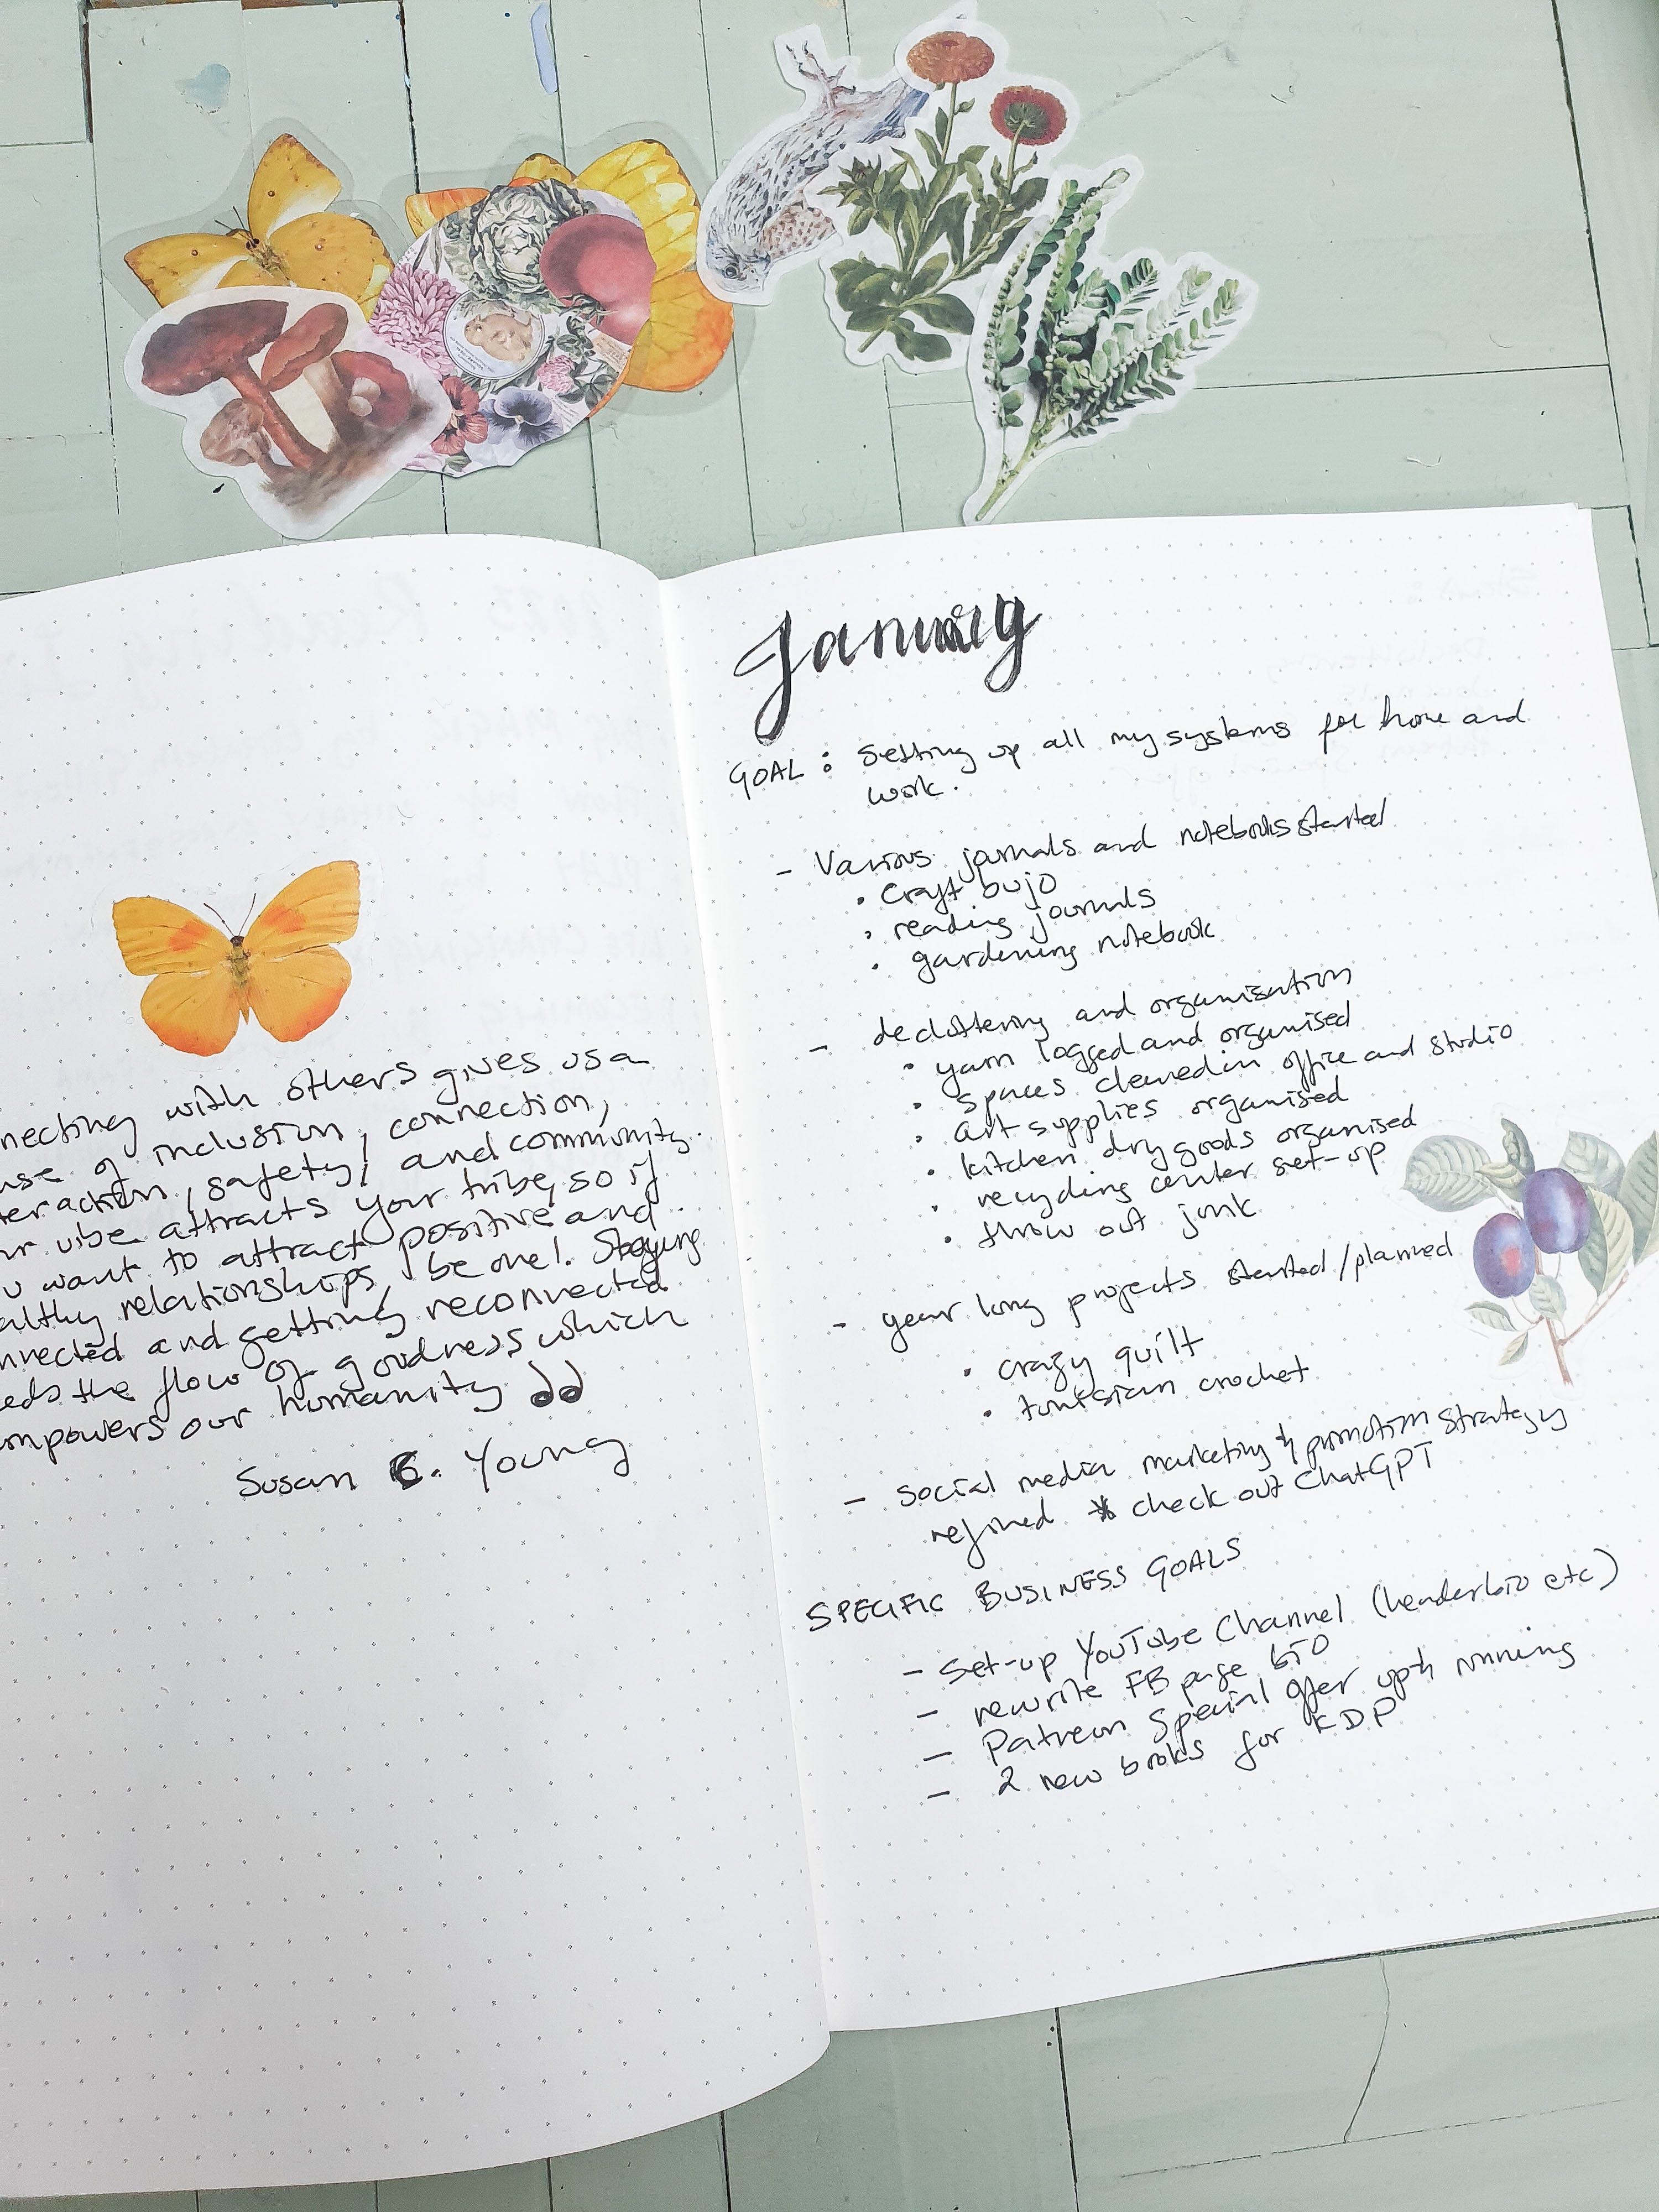 necting with others gives us a
nse of inclusion, connection,
teraction, safety, and community.
ur vibe attracts your tribe, so if
u want to attract positive and
althy relationships, be one! Staying
nnected and getting reconnected
eds the flow of goodness which
mpowers our humanity
Susan C. Young
January
GOAL: Setting up all my systems for home and
work.
- Various journals and notebooks started
• Craft bujo
• reading journals
• gardening notebook
- decluttering and organisation
• yarn logged and organised
• spaces cleared in office and studio
• art supplies organised
• kitchen dry goods organised
• recycling center set-up
• throw out junk
- year long projects started/planned
• crazy quilt
• tunisian crochet
- social media marketing & promotion strategy
refined * check out ChatGPT
SPECIFIC BUSINESS GOALS
- Set-up YouTube Channel (header bio etc)
- rewrite FB page bio
- Patreon Special offer up & running
- 2 new books for KDP